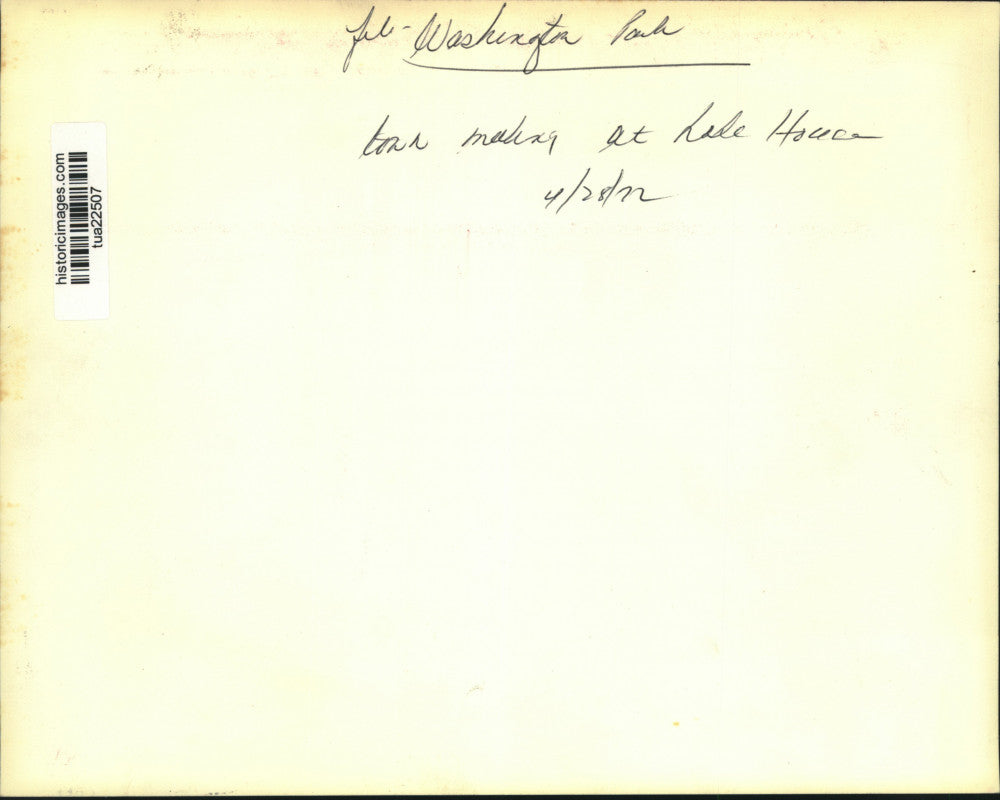 file- Washington Park
town meeting at Lake House
4/28/72
historicimages.com
tua22507